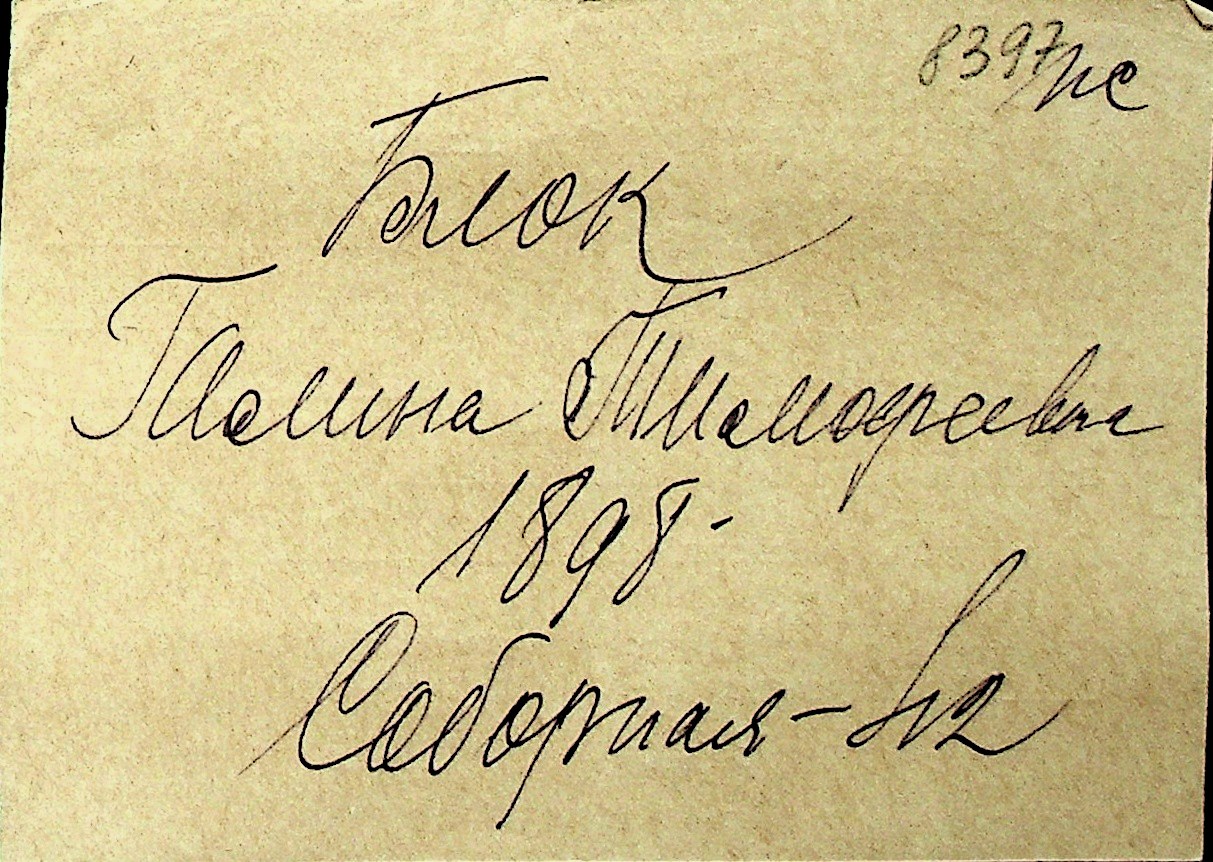 8397/пс
Блок
Галина Тимофеевна
1898-
Соборная-42